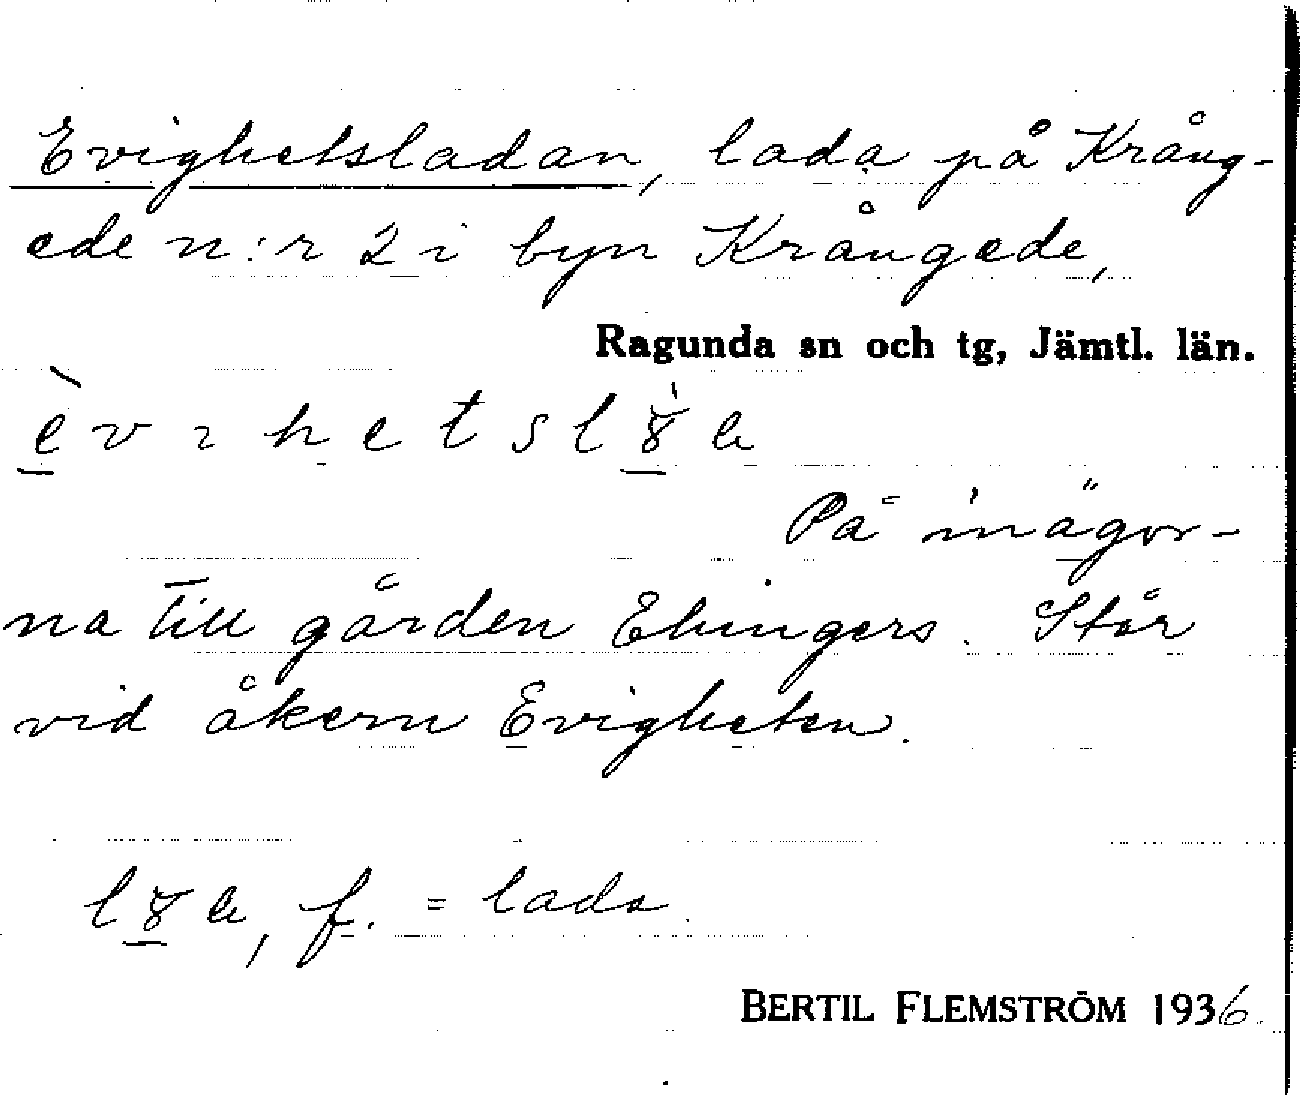 Evighetsladan, lada på Krång-
ede n:r 2 i byn Krångede,
Ragunda sn och tg, Jämtl. län.
På inägor-
na till gården Ehingers. Står
vid åkern Evigheten.
f. = lada.
BERTIL FLEMSTRÖM 1936.